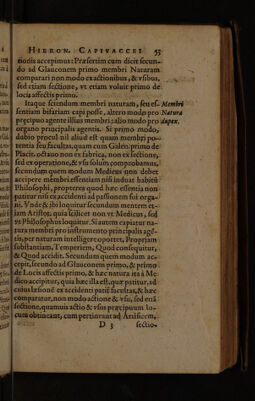 HIERON. CAPIVACCEI 53
modis accepimus: Præsertim cum dicit secun-
do ad Glauconem primo membri Naturam
comparari non modo exactionibus, & vsibus,
sed etiam sectione, vt etiam voluit primo de
locis affectis primo.
Itaque sciendum membri naturam, seu es- Membri
sentiam bifariam capi posse, altero modo pro Natura
præcipuo agente illius membri: alio modo pro duplex.
organo principalis agentis. Si primo modo,
dubio procul nil aliud est quam membri po-
tentia seu facultas, quam cum Galen: primo de
Placit. octauo non ex fabrica, non ex sectione,
sed ex operatione, & vsu solum comprobamus,
secundum quem modum Medicus non debet
accipere membri essentiam nisi induat habitū
Philosophi, propterea quod hæc essentia non
patitur nisi ex accidenti ad passionem sui orga-
ni. Vnde & ibi loquitur secundum mentem et-
iam Aristot. quia scilicet non vt Medicus, sed
vt Philosophus loquitur. Si autem capiatur na-
tura membri pro instrumento principalis agē-
tis, per naturam intelliget oportet, Propriam
substantiam, Temperiem, Quod consequitur,
& Quod accidit. Secundum quem modum ac-
cepit, secundo ad Glauconem primo, & primo
de Locis affectis primo, & hæc natura ita à Me-
dico accipitur, quia hæc illa est, quæ patitur, ad
cuius læsionē ex accidenti patit facultas, & hæc
comparatur, non modo actione & vsu, sed etiā
sectione, quamuis actio & vsus præcipuum lo-
cum obtineant, cum pertineant ad Artificem,
D 3 sectio-